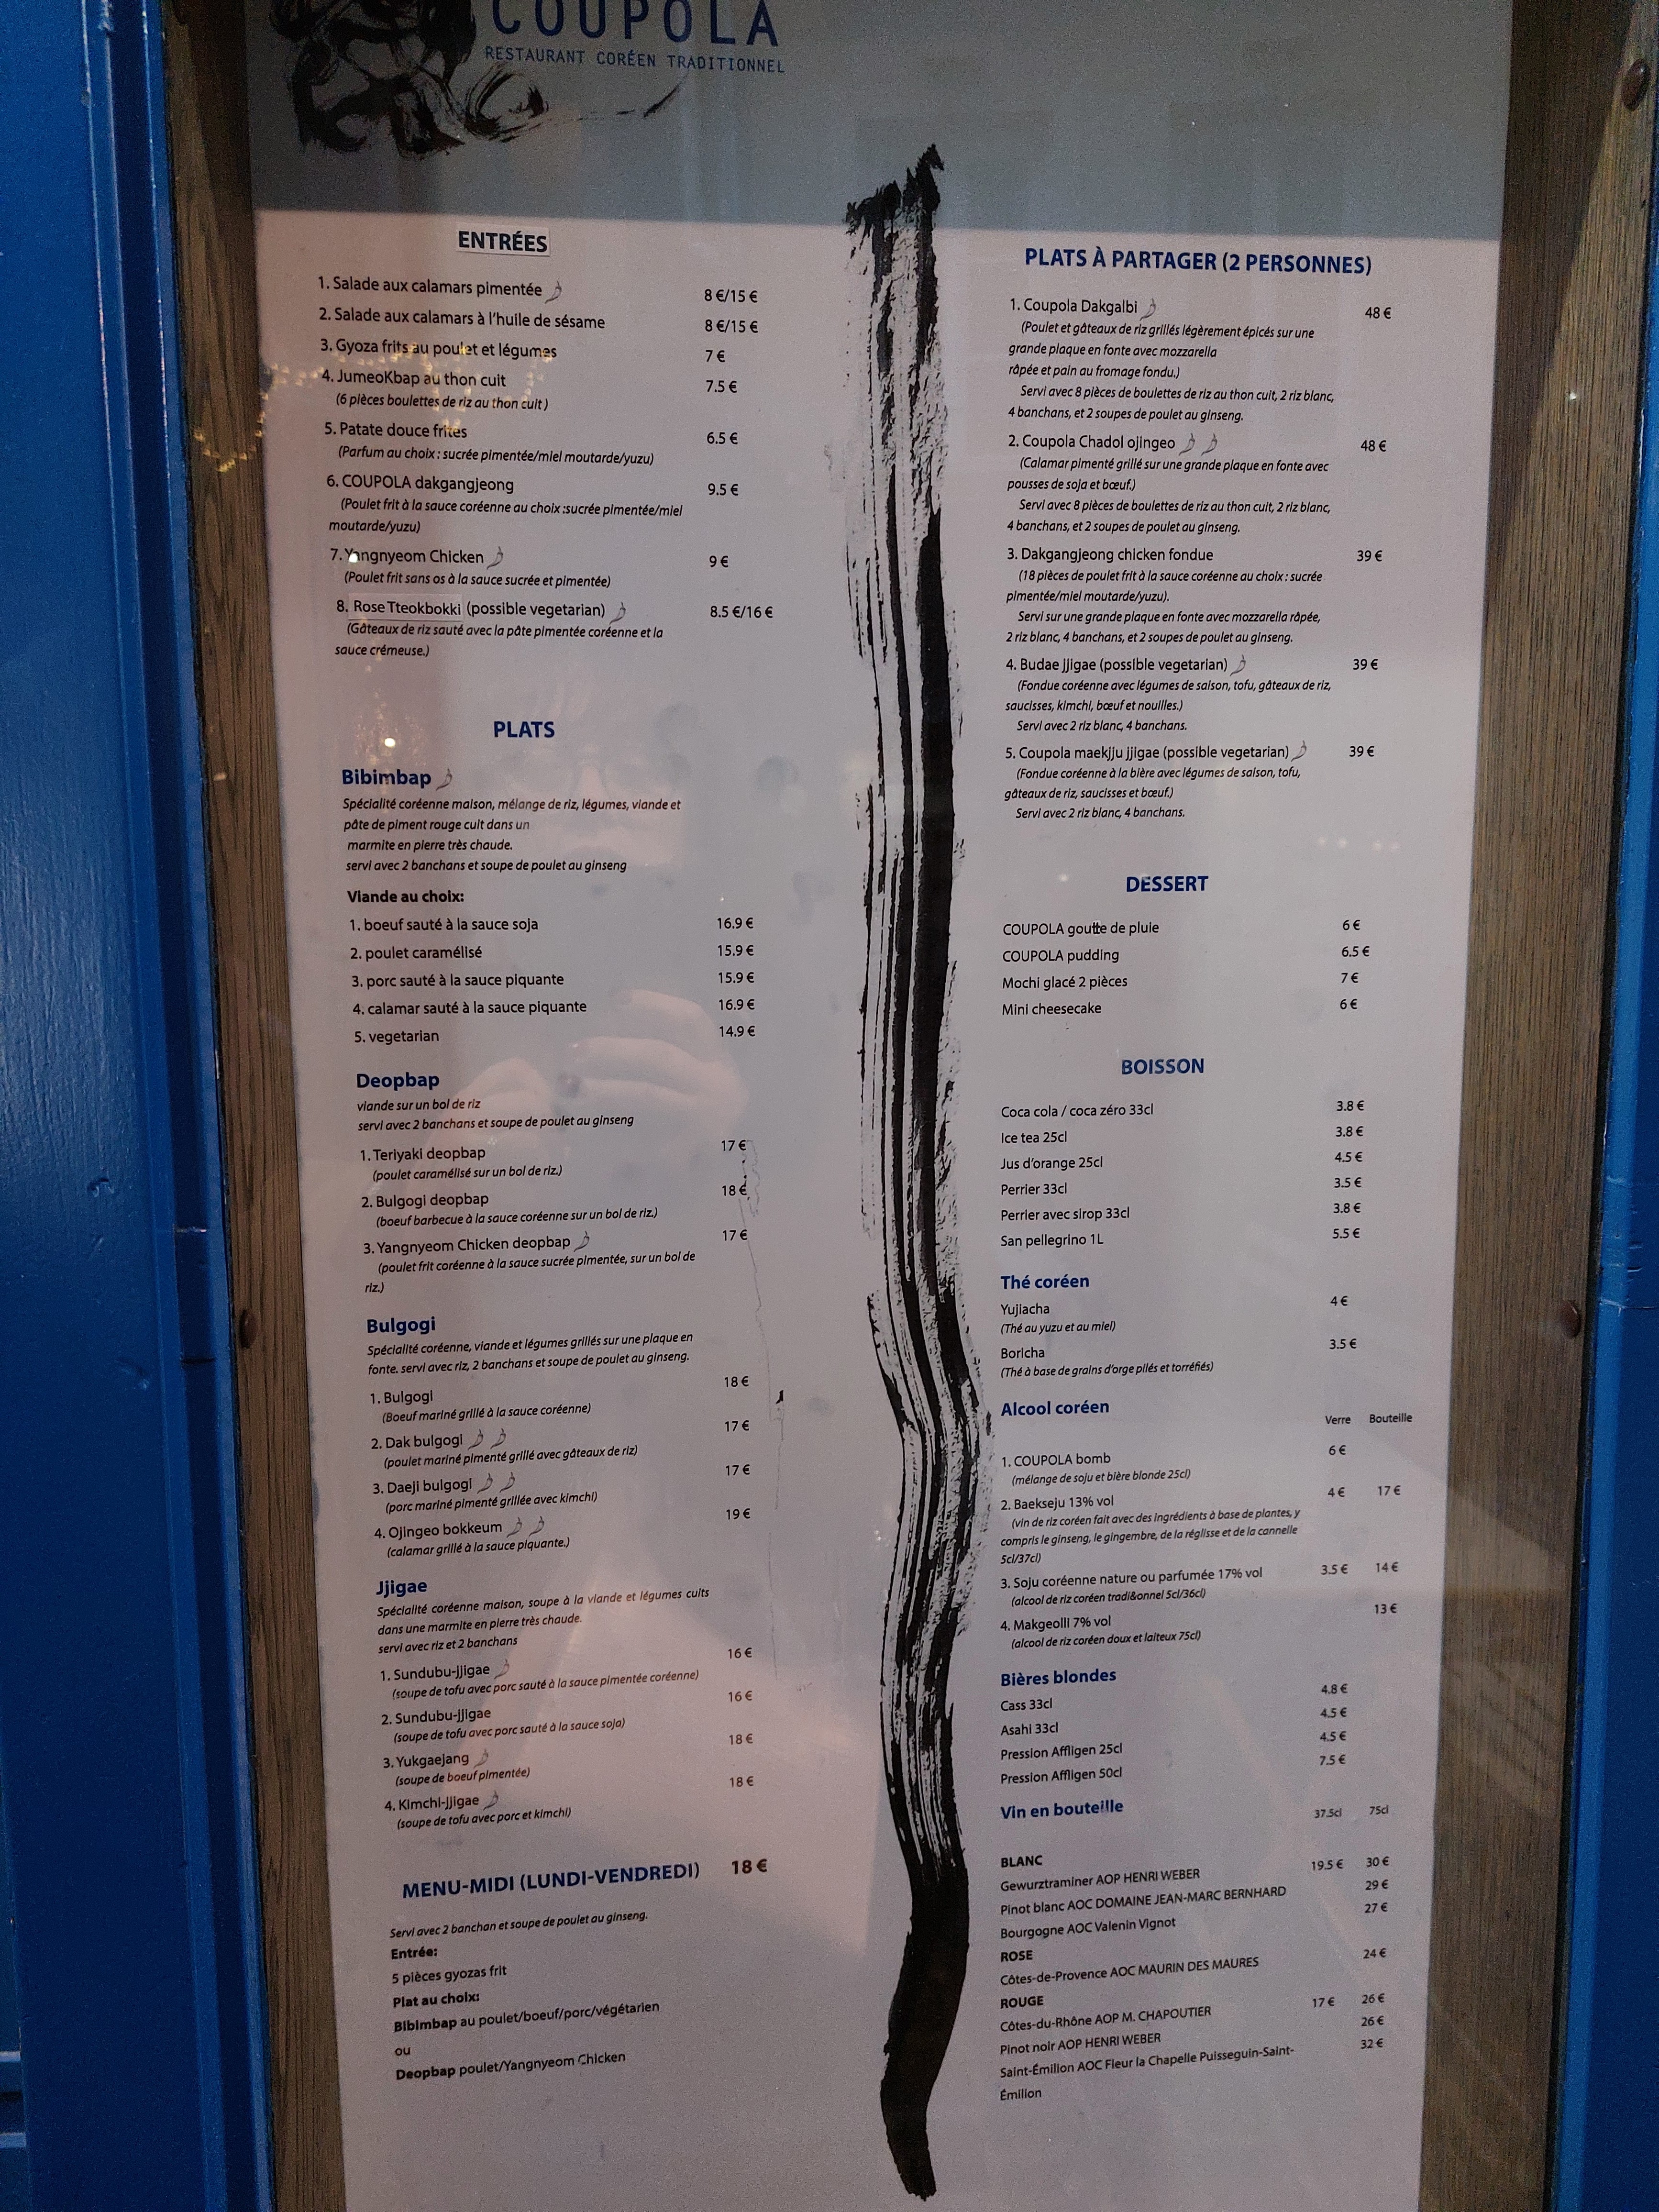 COUPOLA
RESTAURANT CORÉEN TRADITIONNEL
ENTRÉES
1. Salade aux calamars pimentée 8 €/15 €
2. Salade aux calamars à l'huile de sésame 8 €/15 €
3. Gyoza frits au poulet et légumes 7 €
4. JumeoKbap au thon cuit 7.5 €
(6 pièces boulettes de riz au thon cuit )
5. Patate douce frites 6.5 €
(Parfum au choix : sucrée pimentée/miel moutarde/yuzu)
6. COUPOLA dakgangjeong 9.5 €
(Poulet frit à la sauce coréenne au choix :sucrée pimentée/miel
moutarde/yuzu)
7. Yangnyeom Chicken 9 €
(Poulet frit sans os à la sauce sucrée et pimentée)
8. Rose Tteokbokki (possible vegetarian) 8.5 €/16 €
(Gâteaux de riz sauté avec la pâte pimentée coréenne et la
sauce crémeuse.)
PLATS
Bibimbap
Spécialité coréenne maison, mélange de riz, légumes, viande et
pâte de piment rouge cuit dans un
marmite en pierre très chaude.
servi avec 2 banchans et soupe de poulet au ginseng
Viande au choix:
1. boeuf sauté à la sauce soja 16.9 €
2. poulet caramélisé 15.9 €
3. porc sauté à la sauce piquante 15.9 €
4. calamar sauté à la sauce piquante 16.9 €
5. vegetarian 14.9 €
Deopbap
viande sur un bol de riz
servi avec 2 banchans et soupe de poulet au ginseng
1. Teriyaki deopbap 17 €
(poulet caramélisé sur un bol de riz.)
2. Bulgogi deopbap 18 €
(boeuf barbecue à la sauce coréenne sur un bol de riz.)
3. Yangnyeom Chicken deopbap 17 €
(poulet frit coréenne à la sauce sucrée pimentée, sur un bol de
riz.)
Bulgogi
Spécialité coréenne, viande et légumes grillés sur une plaque en
fonte. servi avec riz, 2 banchans et soupe de poulet au ginseng.
1. Bulgogi 18 €
(Boeuf mariné grillé à la sauce coréenne)
2. Dak bulgogi 17 €
(poulet mariné pimenté grillé avec gâteaux de riz)
3. Daeji bulgogi 17 €
(porc mariné pimenté grillée avec kimchi)
4. Ojingeo bokkeum 19 €
(calamar grillé à la sauce piquante.)
Jjigae
Spécialité coréenne maison, soupe à la viande et légumes cuits
dans une marmite en pierre très chaude.
servi avec riz et 2 banchans
1. Sundubu-jjigae 16 €
(soupe de tofu avec porc sauté à la sauce pimentée coréenne)
2. Sundubu-jjigae 16 €
(soupe de tofu avec porc sauté à la sauce soja)
3. Yukgaejang 18 €
(soupe de boeuf pimentée)
4. Kimchi-jjigae 18 €
(soupe de tofu avec porc et kimchi)
MENU-MIDI (LUNDI-VENDREDI) 18 €
Servi avec 2 banchan et soupe de poulet au ginseng.
Entrée:
5 pièces gyozas frit
Plat au choix:
Bibimbap au poulet/boeuf/porc/végétarien
ou
Deopbap poulet/Yangnyeom Chicken
PLATS À PARTAGER (2 PERSONNES)
1. Coupola Dakgalbi 48 €
(Poulet et gâteaux de riz grillés légèrement épicés sur une
grande plaque en fonte avec mozzarella
râpée et pain au fromage fondu.)
Servi avec 8 pièces de boulettes de riz au thon cuit, 2 riz blanc,
4 banchans, et 2 soupes de poulet au ginseng.
2. Coupola Chadol ojingeo 48 €
(Calamar pimenté grillé sur une grande plaque en fonte avec
pousses de soja et bœuf.)
Servi avec 8 pièces de boulettes de riz au thon cuit, 2 riz blanc,
4 banchans, et 2 soupes de poulet au ginseng.
3. Dakgangjeong chicken fondue 39 €
(18 pièces de poulet frit à la sauce coréenne au choix : sucrée
pimentée/miel moutarde/yuzu).
Servi sur une grande plaque en fonte avec mozzarella râpée,
2 riz blanc, 4 banchans, et 2 soupes de poulet au ginseng.
4. Budae jjigae (possible vegetarian) 39 €
(Fondue coréenne avec légumes de saison, tofu, gâteaux de riz,
saucisses, kimchi, bœuf et nouilles.)
Servi avec 2 riz blanc, 4 banchans.
5. Coupola maekjju jjigae (possible vegetarian) 39 €
(Fondue coréenne à la bière avec légumes de saison, tofu,
gâteaux de riz, saucisses et bœuf.)
Servi avec 2 riz blanc, 4 banchans.
DESSERT
COUPOLA goutte de pluie 6 €
COUPOLA pudding 6.5 €
Mochi glacé 2 pièces 7 €
Mini cheesecake 6 €
BOISSON
Coca cola / coca zéro 33cl 3.8 €
Ice tea 25cl 3.8 €
Jus d'orange 25cl 4.5 €
Perrier 33cl 3.5 €
Perrier avec sirop 33cl 3.8 €
San pellegrino 1L 5.5 €
Thé coréen
Yujiacha 4 €
(Thé au yuzu et au miel)
Boricha 3.5 €
(Thé à base de grains d'orge pilés et torréfiés)
Alcool coréen
Verre Bouteille
1. COUPOLA bomb 6 €
(mélange de soju et bière blonde 25cl)
2. Baekseju 13% vol 4 € 17 €
(vin de riz coréen fait avec des ingrédients à base de plantes, y
compris le ginseng, le gingembre, de la réglisse et de la cannelle
5cl/37cl)
3. Soju coréenne nature ou parfumée 17% vol 3.5 € 14 €
(alcool de riz coréen tradi&onnel 5cl/36cl)
4. Makgeolli 7% vol 13 €
(alcool de riz coréen doux et laiteux 75cl)
Bières blondes
Cass 33cl 4.8 €
Asahi 33cl 4.5 €
Pression Affligen 25cl 4.5 €
Pression Affligen 50cl 7.5 €
Vin en bouteille 37.5cl 75cl
BLANC
Gewurztraminer AOP HENRI WEBER 19.5 € 30 €
Pinot blanc AOC DOMAINE JEAN-MARC BERNHARD 29 €
Bourgogne AOC Valenin Vignot 27 €
ROSE
Côtes-de-Provence AOC MAURIN DES MAURES 24 €
ROUGE
Côtes-du-Rhône AOP M. CHAPOUTIER 17 € 26 €
Pinot noir AOP HENRI WEBER 26 €
Saint-Émilion AOC Fleur la Chapelle Puisseguin-Saint- 32 €
Émilion